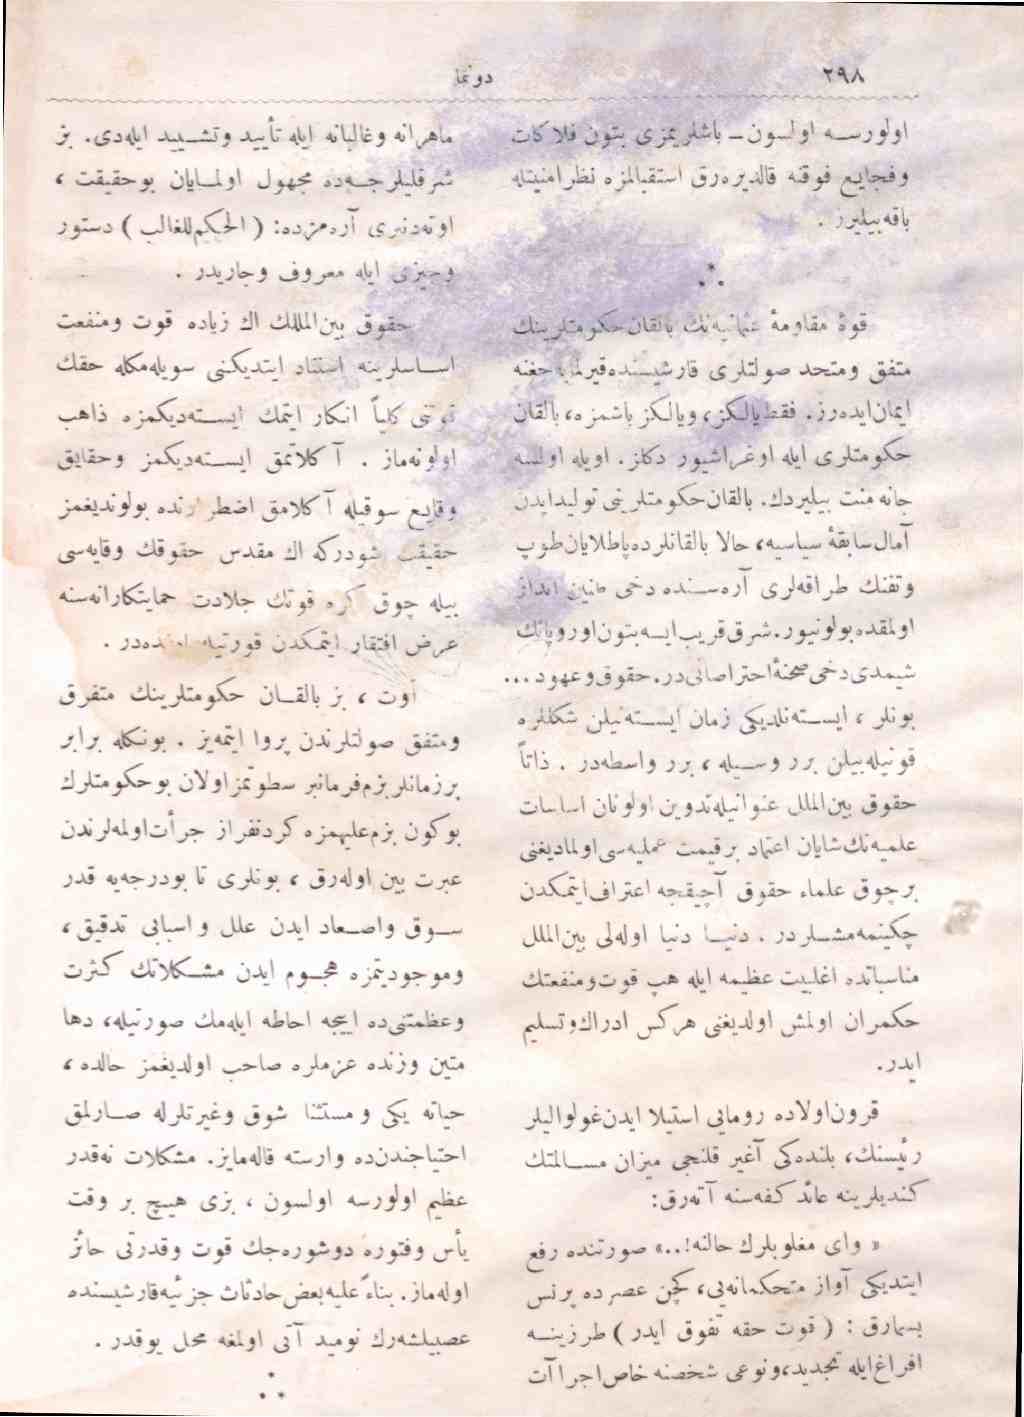 ٢٩٨
دونما
اولورسه اولسون — باشلریمزی بتون فلاکات
وفجایع فوقنه قالدیره‌رق استقبالمزه نظر امنیتله
باقه‌بیلیرز .
قوهٔ مقاومهٔ عثمانیه‌نك بالقان حکومتلرینك
متفق ومتحد صولتلری قارشیسنده قیرلمایه‌جغنه
ایمان ایده‌رز. فقط یالکز، ویالکز باشمزه، بالقان
حکومتلری ایله اوغراشیور دکلز. اویله اولسه
جانه منت بیلیردك. بالقان حکومتلرینی تولید ایدن
آمال سابقهٔ سیاسیه، حالا بالقانلرده پاطلایان طوپ
وتفنك طراقه‌لری آره‌سنده دخی طنین انداز
اولمقده بولونیور. شرق قریب ایسه بتون اوروپانك
شیمدی دخی صحنهٔ احتراصاتی در. حقوق وعهود...
بونلر ، ایسته‌نلدیکی زمان ایسته‌نیلن شکللره
قونیله‌بیلن برر وسیله ، برر واسطه‌در . ذاتاً
حقوق بین‌الملل عنوانیله تدوین اولونان اساسات
علمیه‌نك شایان اعتماد برقیمت عملیه‌سی اولمادیغنی
برچوق علماء حقوق آچیقجه اعتراف ایتمکدن
چکینمه‌مشلردر . دنیا دنیا اوله‌لی بین‌الملل
مناسباتده اغلبیت عظیمه ایله هپ قوت ومنفعتك
حکمران اولمش اولدیغنی هرکس ادراك وتسلیم
ایدر.
قرون اولاده رومایی استیلا ایدن غولوالیلر
رئیسنك، بلنده‌کی آغیر قلنجی میزان مسالمتك
کندیلرینه عائد کفه‌سنه آته‌رق:
« وای مغلوبلرك حالنه!..» صورتنده رفع
ایتدیکی آواز متحکمانه‌یی، کچن عصرده پرنس
بسمارق : ( قوت حقه تفوق ایدر ) طرزینه
افراغ ایله تجدید، ونوعی شخصنه خاص اجراآت
ماهرانه وغالبانه ایله تأیید وتشیید ایله‌دی. بز
شرقلیلرجه‌ده مجهول اولمایان بوحقیقت ،
اوته‌دنبری آره‌مزده: ( الحکم للغالب ) دستور
وجیزی ایله معروف وجاریدر .
حقوق بین‌المللك اك زیاده قوت ومنفعت
اساسلرینه استناد ایتدیکنی سویله‌مکله حقك
قوتنی کلیاً انکار ایتمك ایسته‌دیکمزه ذاهب
اولونه‌ماز . آکلاتمق ایسته‌دیکمز وحقایق
وقایع سوقیله آکلامق اضطرارنده بولوندیغمز
حقیقت شودرکه اك مقدس حقوقك وقایه‌سی
بیله چوق کره قوتك جلادت حمایتکارانه‌سنه
عرض افتقار ایتمکدن قورتیله‌مامقده‌در .
اوت ، بز بالقان حکومتلرینك متفرق
ومتفق صولتلرندن پروا ایتمه‌یز . بونکله برابر
برزمانلر بزم فرمانبر سطوتمز اولان بوحکومتلرك
بوکون بزم علیهمزه کردنفراز جرأت اولمه‌لرندن
عبرت بین اوله‌رق ، بونلری تا بودرجه‌یه قدر
سوق واصعاد ایدن علل واسبابی تدقیق ،
وموجودیتمزه هجوم ایدن مشکلاتك کثرت
وعظمتنی‌ده اییجه احاطه ایله‌مك صورتیله، دها
متین وزنده عزملره صاحب اولدیغمز حالده ،
حیاته یکی ومستثنا شوق وغیرتلرله صارلمق
احتیاجندن‌ده وارسته قاله‌مایز. مشکلات نه‌قدر
عظیم اولورسه اولسون ، بزی هیچ بر وقت
یأس وفتوره دوشوره‌جك قوت وقدرتی حائز
اوله‌ماز. بناءً علیه بعض حادثات جزئیه قارشیسنده
عصبیلشه‌رك نومید آتی اولمغه محل یوقدر .